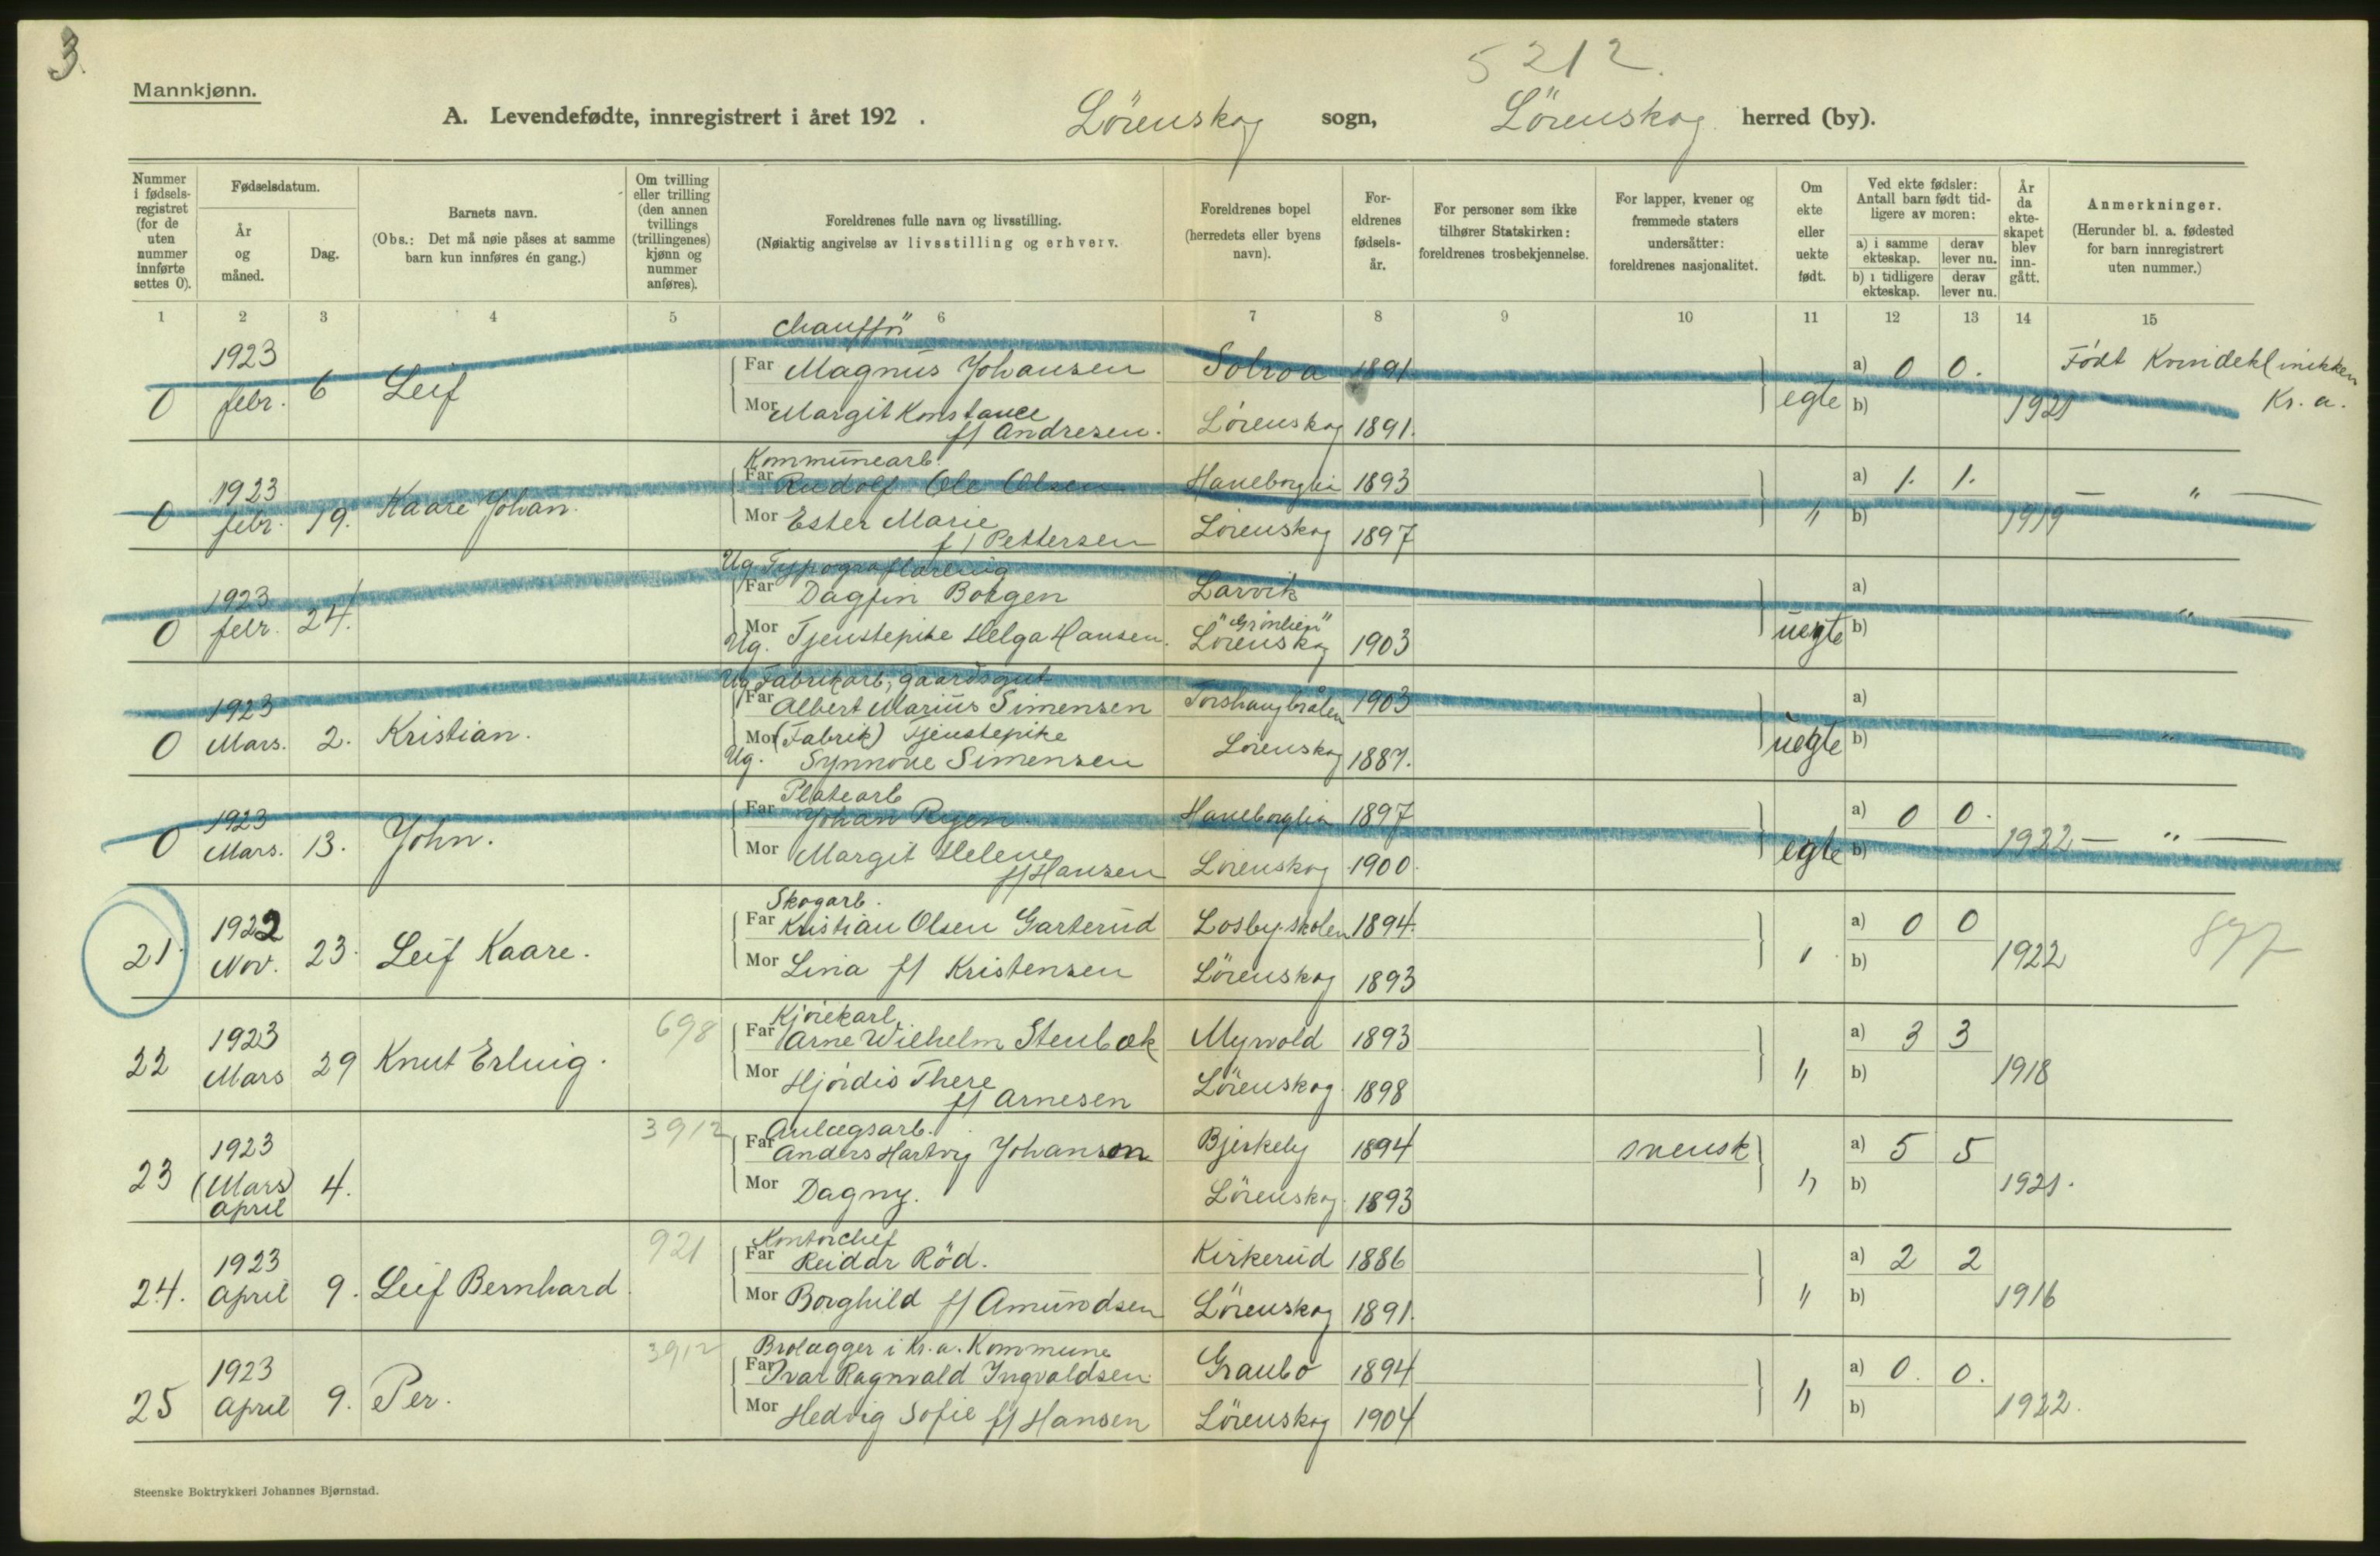 3.
5212.
Mannkjønn.
A. Levendefødte, innregistrert i året 192 . Lörenskog sogn, Lörenskog herred (by).
Nummer i fødsels-registret (for de uten nummer innførte settes 0).
Fødselsdatum.
År og måned.
Dag.
Barnets navn.
(Obs.: Det må nøie påses at samme barn kun innføres én gang.)
Om tvilling eller trilling (den annen tvillings (trillingenes) kjønn og nummer anføres).
Foreldrenes fulle navn og livsstilling.
(Nøiaktig angivelse av livsstilling og erhverv.
Foreldrenes bopel (herredets eller byens navn).
For-eldrenes fødsels-år.
For personer som ikke tilhører Statskirken: foreldrenes trosbekjennelse.
For lapper, kvener og fremmede staters undersåtter: foreldrenes nasjonalitet.
Om ekte eller uekte født.
Ved ekte fødsler: Antall barn født tid-ligere av moren:
a) i samme ekteskap. derav lever nu.
b) i tidligere ekteskap. derav lever nu.
År da ekte-skapet blev inn-gått.
Anmerkninger.
(Herunder bl. a. fødested for barn innregistrert uten nummer.)
1 2 3 4 5 6 7 8 9 10 11 12 13 14 15
chaufför
1923 Far Magnus Johansen Solroa 1891 a) 0 0. Födt Kvindeklinikken
0 febr. 6 Leif Mor Margit Konstance egte b) 1921 Kr. a.
f/ Andresen. Lörenskog 1891.
Kommunearb.
1923 Far Rudolf Ole Olsen Haneborglia 1893 a) 1. 1. — " —
0 febr. 19. Kaare Johan. Mor Ester Marie " b) 1919
f/ Pettersen Lörenskog 1897
Ug. Typograflærling
1923 Far Dagfin Borgen Larvik a) — " —
0 febr. 24. Mor "Grönlien" uegte b)
Ug. Tjenstepike Helga Hansen. Lörenskog 1903
Ug. Fabrikarb, gaardsgut
1923 Far Albert Marius Simensen Torshaugbråten 1903 a)
0 Mars. 2. Kristian. Mor (Fabrik) Tjenstepike uegte b) — " —
Ug. Synnöve Simensen Lörenskog 1887.
Platearb
1923 Far Johan Ryen. Haneborglia 1897 a) 0 0.
0 Mars. 13. John. Mor Margit Helene egte b) 1922 — " —
f/ Hansen Lörenskog 1900.
Skogarb.
1922 Far Kristian Olsen Garterud Losby skolen 1894. a) 0 0
21. Nov. 23. Leif Kaare. Mor Lina f/ Kristensen Lörenskog 1893 " b) 1922 877
Kjörekarl
1923 698 Far Arne Wilhelm Stenbæk Myrvold 1893 a) 3 3
22 Mars 29 Knut Erling. Mor Hjördis There
f/ Arnesen Lörenskog. 1898 " b) 1918
Anlægsarb.
1923 3912 Far Anders Hartvig Johanson Bjerkely 1894 svensk a) 5 5
23 (Mars) 4. Mor Dagny. Lörenskog. 1893 " b) 1921.
April
Kontorchef
1923 921 Far Reidar Röd. Kirkerud 1886 a) 2 2
24. April 9. Leif Bernhard Mor Borghild f/ Amundsen Lörenskog 1891. " b) 1916
Brolægger i Kr. a. Kommune
1923 3912 Far Ivar Ragnvald Ingvaldsen Graubo 1894 a) 0. 0.
25 April 9. Per. Mor Hedvig Sofie f/ Hansen Lörenskog 1904 " b) 1922.
Steenske Boktrykkeri Johannes Bjørnstad.